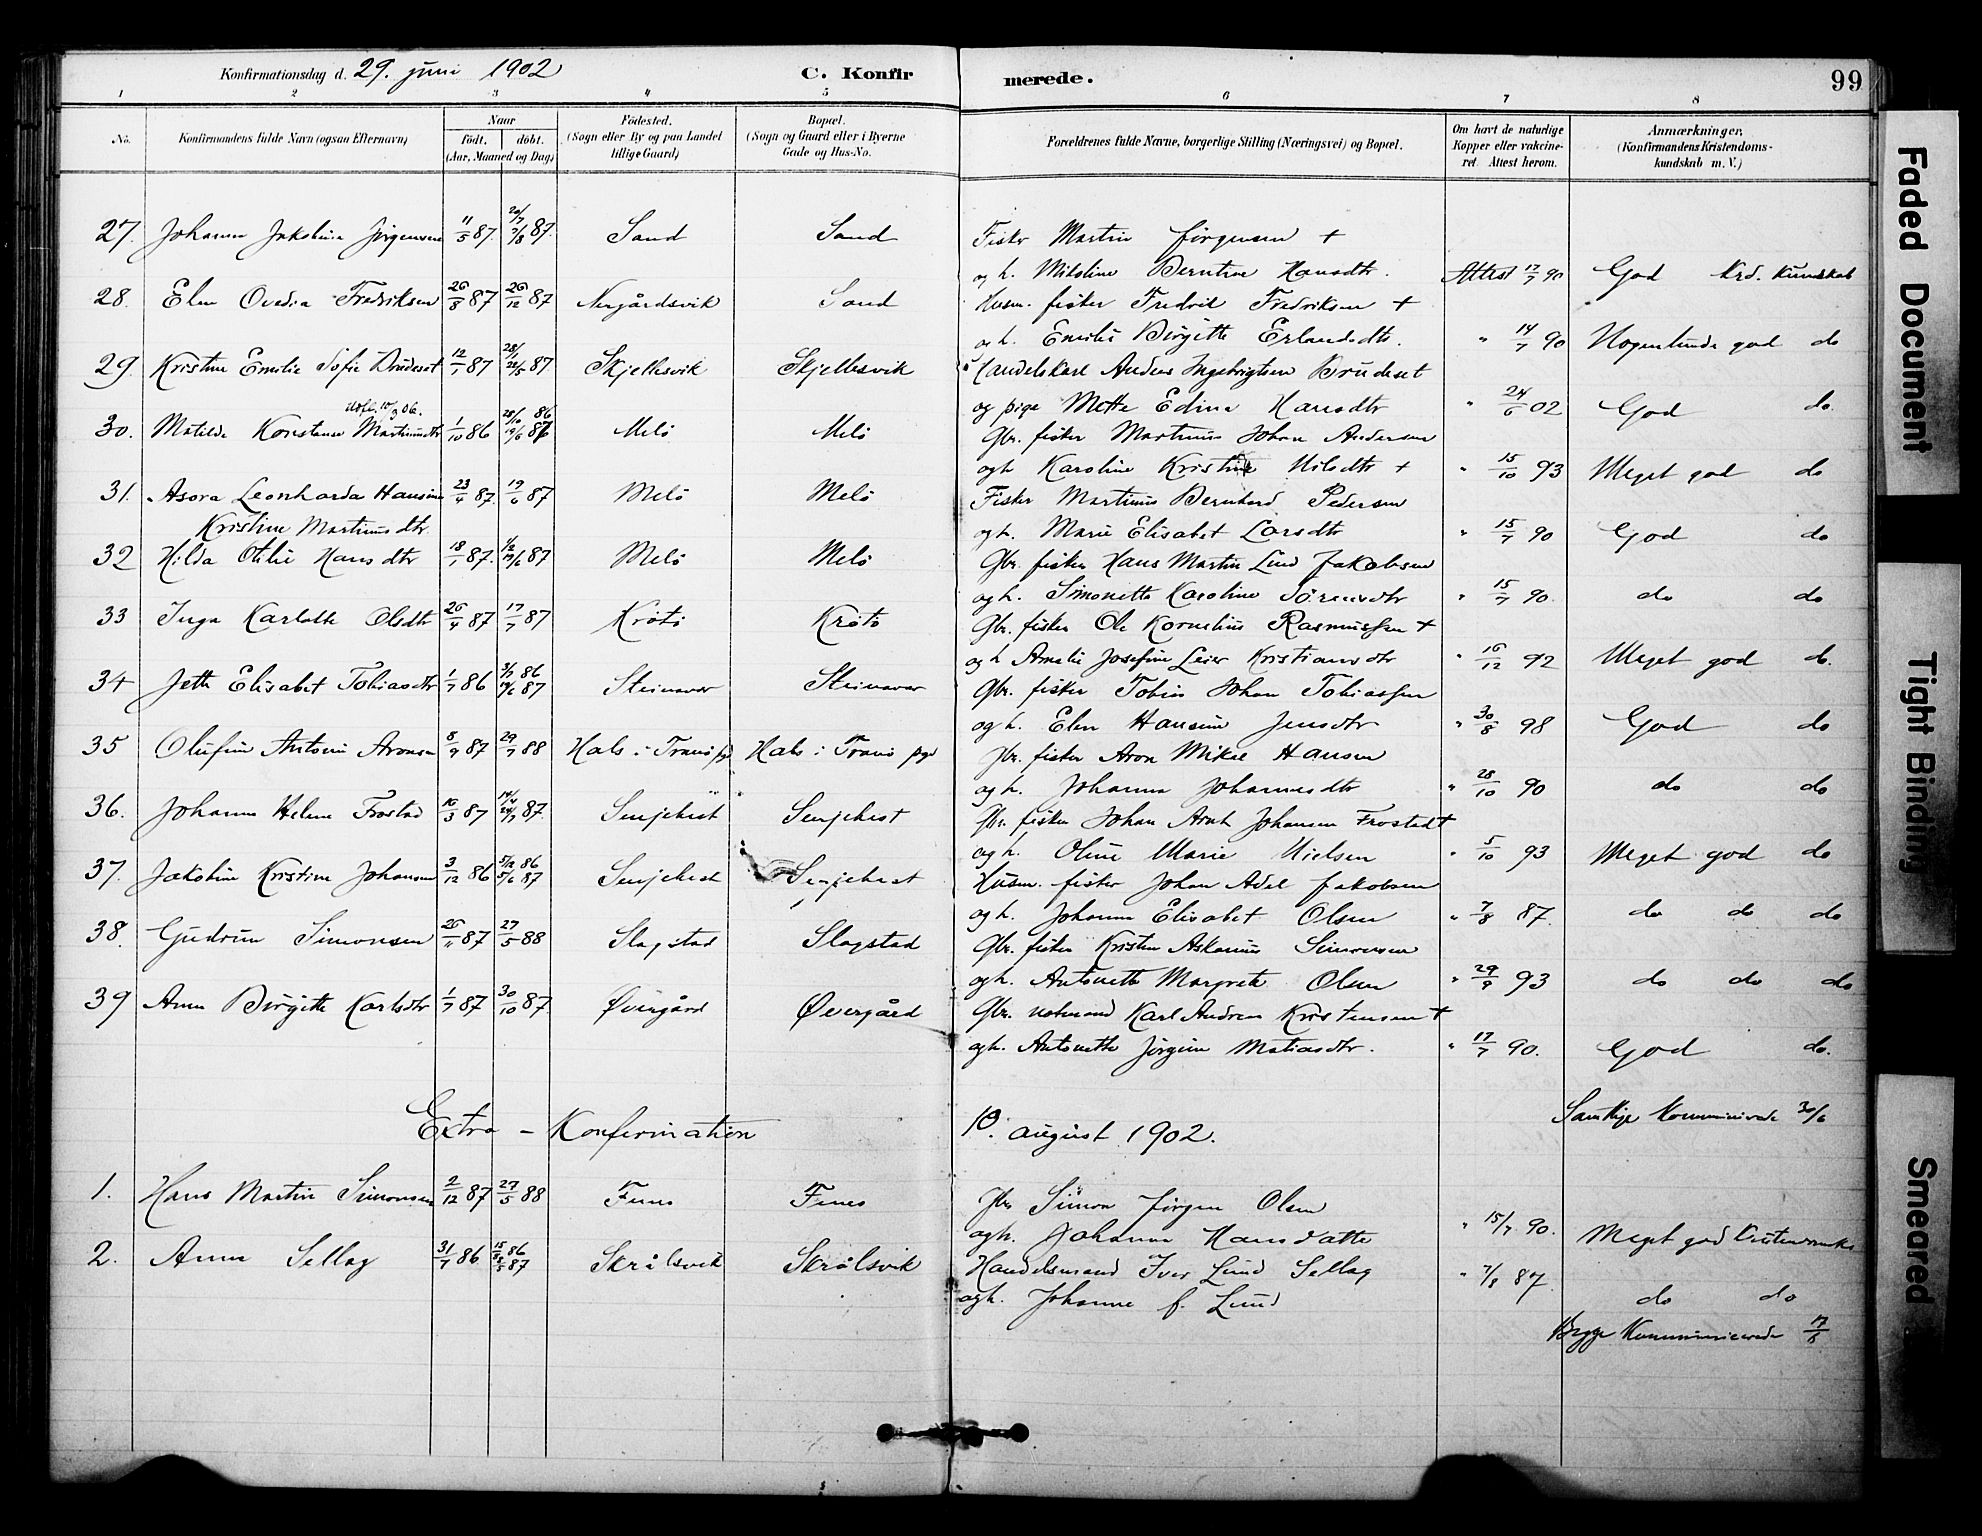 Konfirmationsdag d. 29. juni 1902 C. Konfirmerede. 99
1 2 3 4 5 6 7 8
No. Konfirmandens fulde Navn (ogsaa Efternavn) Naar født. døbt. (Aar, Maaned og Dag) Fødested. (Sogn eller By og paa Landet tillige Gaard) Bopæl. (Sogn og Gaard eller i Byerne Gade og Hus-No. Forældrenes fulde Navne, borgerlige Stilling (Næringsvei) og Bopæl. Om havt de naturlige Kopper eller vakcineret. Attest herom. Anmærkninger, (Konfirmandens Kristendomskundskab m. V.)
27. Johanna Jakobine Jørgensen 11/5 87. 20/7 7/8 87. Sand Sand Fisker Martin Jørgensen +
og h. Nikoline Berntine Hansdtr. Attest 17/7 90 God Krd. kundskab
28. Elen Ovedia Fredriksen 26/8 87 26/12 87 Nergårdsvik Sand Husm. fisker Fredrik Fredriksen +
og h. Emilie Birgitte Erlandsdtr. " 14/7 90 Nogenlunde god do
29. Kristine Emilie Sofie Brudeset 12/1 87 87. Skjellesvik Skjellesvik Handelskarl Andreas Ingebrigtsen Brudeset
og pige Mette Edina Hansdtr " 24/6 02 God do.
30. Matilde Konstanse Martinusdtr 1/10 86 28/10 86 19/6 87 Melö Melö Gbr. fisker Martinus Johan Andersen
og h Karoline Kristine Nilsdtr + " 15/10 93 Meget god do
31. Asora Leonharda Hansine 23/4 87. 19/6 87 Melö Melö Fisker Martinus Bernhard Pedersen
Kristine Martinusdtr. og h. Marie Elisabet Larsdtr " 15/7 90 God do
32 Hilda Otilie Hansdtr 18/1 87. 1/2 19/6 87 Melö Melö Gbr. fisker Hans Martin Lind Jakobsen
og h. Simonette Karoline Sörensdtr " 15/7 90. do do
33 Inga Karlotte Olsdtr 26/4 87 17/7 87 Krötö Krötö Gbr. fisker Ole Kornelius Rasmussen +
og h Amalie Josefine Leier Kristiansdtr " 16/12 92 Meget god do.
34 Jette Elisabet Tobiasdtr 1/7 86 3/7 86 19/6 87 Steinavar Steinavar Gbr. fisker Tobias Johan Tobiassen
og h. Elen Hansine Jensdtr " 30/8 98 God do
35 Olufine Antonie Aronsen 8/9 87 29/7 88 Hals i Tranö pgd Hals i Tranö pgd Gbr. fisker Aron Mikal Hansen
og h. Johanna Johannesdtr " 28/10 90 do do
36. Johanna Helene Frostad 16/3 87 87. Senjehest Senjehest Gbr. fisker Johan Arnt Johansen Frostad +
og h. Oline Marie Nielsen " 5/10 93 Meget god do
37. Jakobine Kristine Johansen 3/12 86 5/12 86 5/6 87 Senjehest Senjehest Husm. fisker Johan Adel Jakobsen
og h. Johanna Elisabet Olsen " 7/8 87. do do do
38. Gudrun Simonsen 87 27/5 88 Slagstad Slagstad Gbr. fisker Kristen Askanius Simonsen
og h. Antonette Margrete Olsen " 29/9 93 do do do
39 Anna Birgitte Karlsdtr 1/7 87 30/10 87. Øvergård Øvergård Gbr. notmand Karl Andreas Kristensen +
og h. Antonette Jørgine Matiasdtr. " 17/7 90. God do.
Samtlige Kommunicerede 30/6
Extra - Konfirmation 10. august 1902.
1. Hans Martin Simonsen 2/12 87 27/5 88 Fines Fines Gbr Simon Jørgen Olsen
og h. Johanna Hansdatter " 15/7 90. Meget god Kristendomsk.
2. Anna Selleg 31/7 86 15/8 86 87 Skrålsvik Skrålsvik Handelsmand Iver Lund Selleg
og h. Johanne f. Lund " 7/8 87. do do
Begge Kommunicerede 17/8
Faded Document
Tight Binding
Smeared